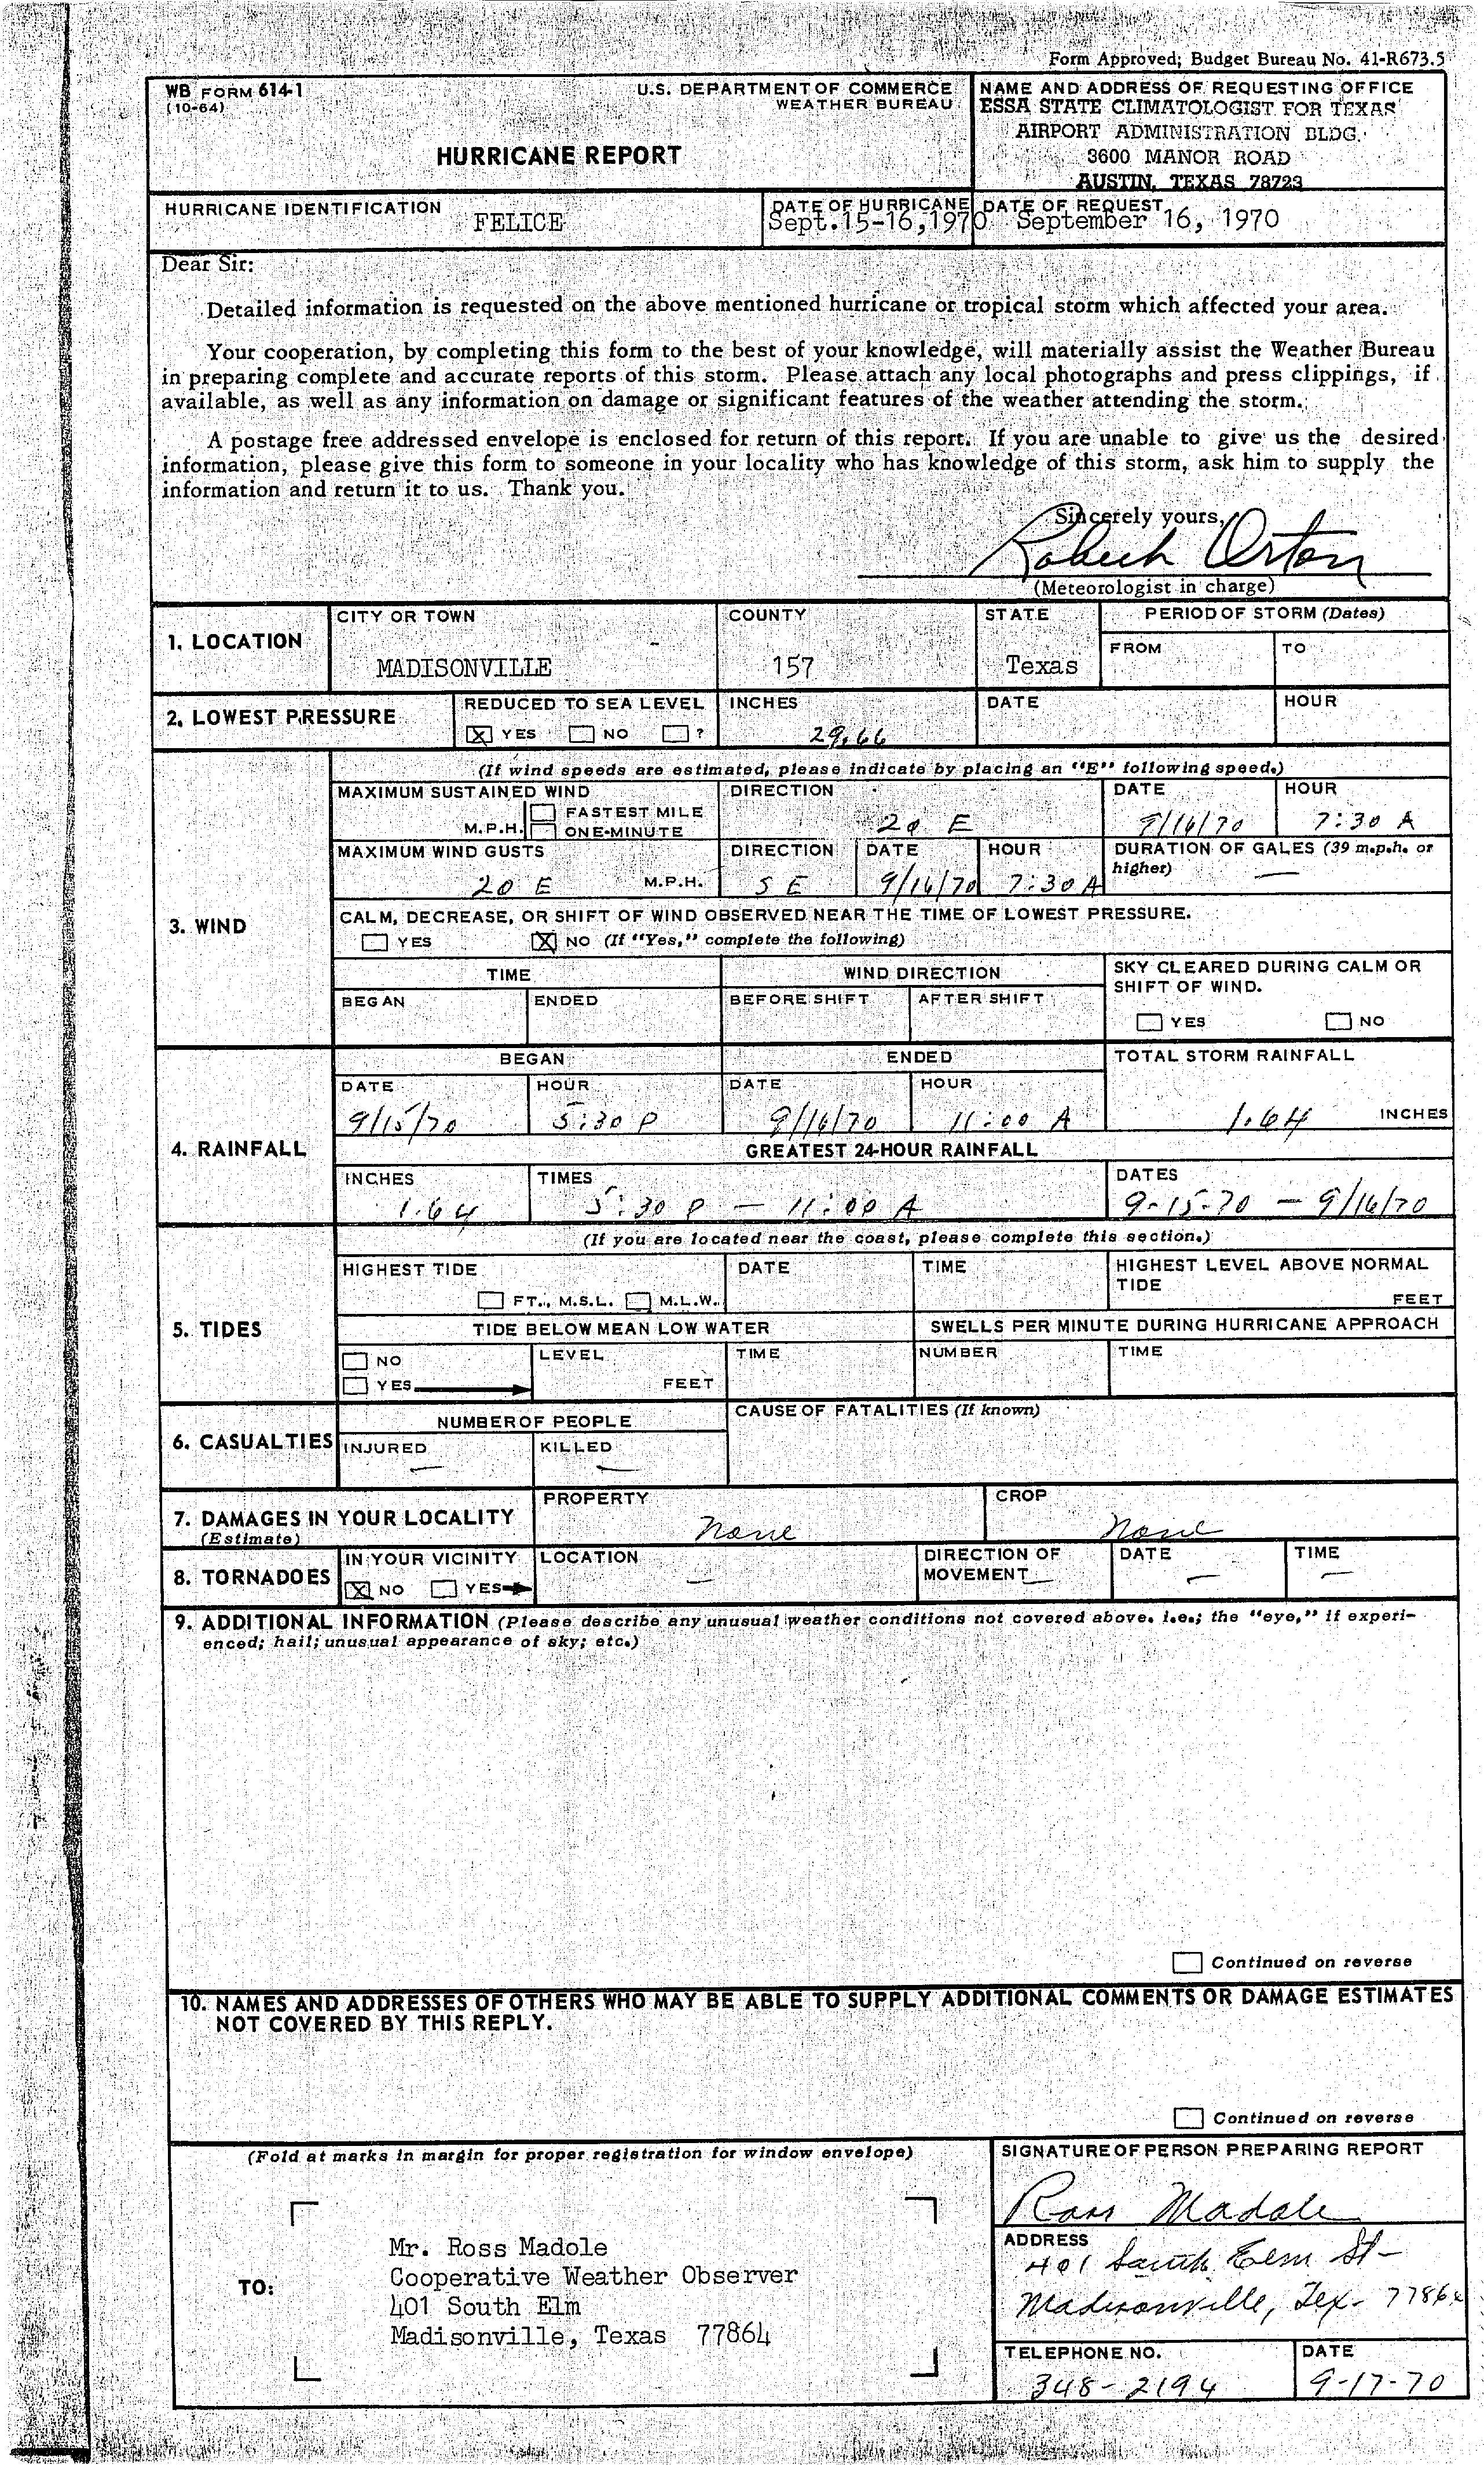 Form Approved; Budget Bureau No. 41-R673.5
WB FORM 614-1
(10-64)
U.S. DEPARTMENT OF COMMERCE
WEATHER BUREAU
HURRICANE REPORT
NAME AND ADDRESS OF REQUESTING OFFICE
ESSA STATE CLIMATOLOGIST FOR TEXAS
AIRPORT ADMINISTRATION BLDG.
3600 MANOR ROAD
AUSTIN, TEXAS 78723
HURRICANE IDENTIFICATION
FELICE
DATE OF HURRICANE
Sept.15-16,1970
DATE OF REQUEST
September 16, 1970
Dear Sir:
Detailed information is requested on the above mentioned hurricane or tropical storm which affected your area.
Your cooperation, by completing this form to the best of your knowledge, will materially assist the Weather Bureau
in preparing complete and accurate reports of this storm. Please attach any local photographs and press clippings, if
available, as well as any information on damage or significant features of the weather attending the storm.
A postage free addressed envelope is enclosed for return of this report. If you are unable to give us the desired
information, please give this form to someone in your locality who has knowledge of this storm, ask him to supply the
information and return it to us. Thank you.
Sincerely yours,
Robert Orton
(Meteorologist in charge)
1. LOCATION
CITY OR TOWN
MADISONVILLE
COUNTY
157
STATE
Texas
PERIOD OF STORM (Dates)
FROM
TO
2. LOWEST PRESSURE
REDUCED TO SEA LEVEL
X YES NO ?
INCHES
29.66
DATE
HOUR
3. WIND
(If wind speeds are estimated, please indicate by placing an "E" following speed.)
MAXIMUM SUSTAINED WIND
M.P.H.
FASTEST MILE
ONE-MINUTE
DIRECTION
20 E
DATE
9/16/70
HOUR
7:30 A
MAXIMUM WIND GUSTS
20 E M.P.H.
DIRECTION
S E
DATE
9/16/70
HOUR
7:30 A
DURATION OF GALES (39 m.p.h. or
higher)
—
CALM, DECREASE, OR SHIFT OF WIND OBSERVED NEAR THE TIME OF LOWEST PRESSURE.
YES X NO (If "Yes," complete the following)
TIME
BEGAN
ENDED
WIND DIRECTION
BEFORE SHIFT
AFTER SHIFT
SKY CLEARED DURING CALM OR
SHIFT OF WIND.
YES NO
4. RAINFALL
BEGAN
DATE
9/15/70
HOUR
5:30 P
ENDED
DATE
9/16/70
HOUR
11:00 A
TOTAL STORM RAINFALL
1.64 INCHES
GREATEST 24-HOUR RAINFALL
INCHES
1.64
TIMES
5:30 P — 11:00 A
DATES
9-15-70 — 9/16/70
5. TIDES
(If you are located near the coast, please complete this section.)
HIGHEST TIDE
FT., M.S.L. M.L.W.
DATE
TIME
HIGHEST LEVEL ABOVE NORMAL
TIDE
FEET
TIDE BELOW MEAN LOW WATER
NO
YES
LEVEL
FEET
TIME
SWELLS PER MINUTE DURING HURRICANE APPROACH
NUMBER
TIME
6. CASUALTIES
NUMBER OF PEOPLE
INJURED
—
KILLED
—
CAUSE OF FATALITIES (If known)
7. DAMAGES IN YOUR LOCALITY
(Estimate)
PROPERTY
None
CROP
None
8. TORNADOES
IN YOUR VICINITY
X NO YES
LOCATION
—
DIRECTION OF
MOVEMENT —
DATE
—
TIME
—
9. ADDITIONAL INFORMATION (Please describe any unusual weather conditions not covered above. i.e.; the "eye," if experi-
enced; hail; unusual appearance of sky; etc.)
Continued on reverse
10. NAMES AND ADDRESSES OF OTHERS WHO MAY BE ABLE TO SUPPLY ADDITIONAL COMMENTS OR DAMAGE ESTIMATES
NOT COVERED BY THIS REPLY.
Continued on reverse
(Fold at marks in margin for proper registration for window envelope)
TO:
Mr. Ross Madole
Cooperative Weather Observer
401 South Elm
Madisonville, Texas 77864
SIGNATURE OF PERSON PREPARING REPORT
Ross Madole
ADDRESS
401 South Elm St-
Madisonville, Tex- 77864
TELEPHONE NO.
348-2194
DATE
9-17-70